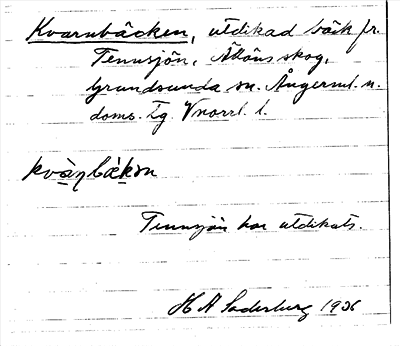 Kvarnbäcken, utdikad bäck fr.
Tennsjön, Åkäns skog,
Grundsunda sn. Ångerml. n.
doms. tg. Vnorrl. l.
kvàṇbæ̀kən
Tennsjön har utdikats.
H A Söderberg 1936